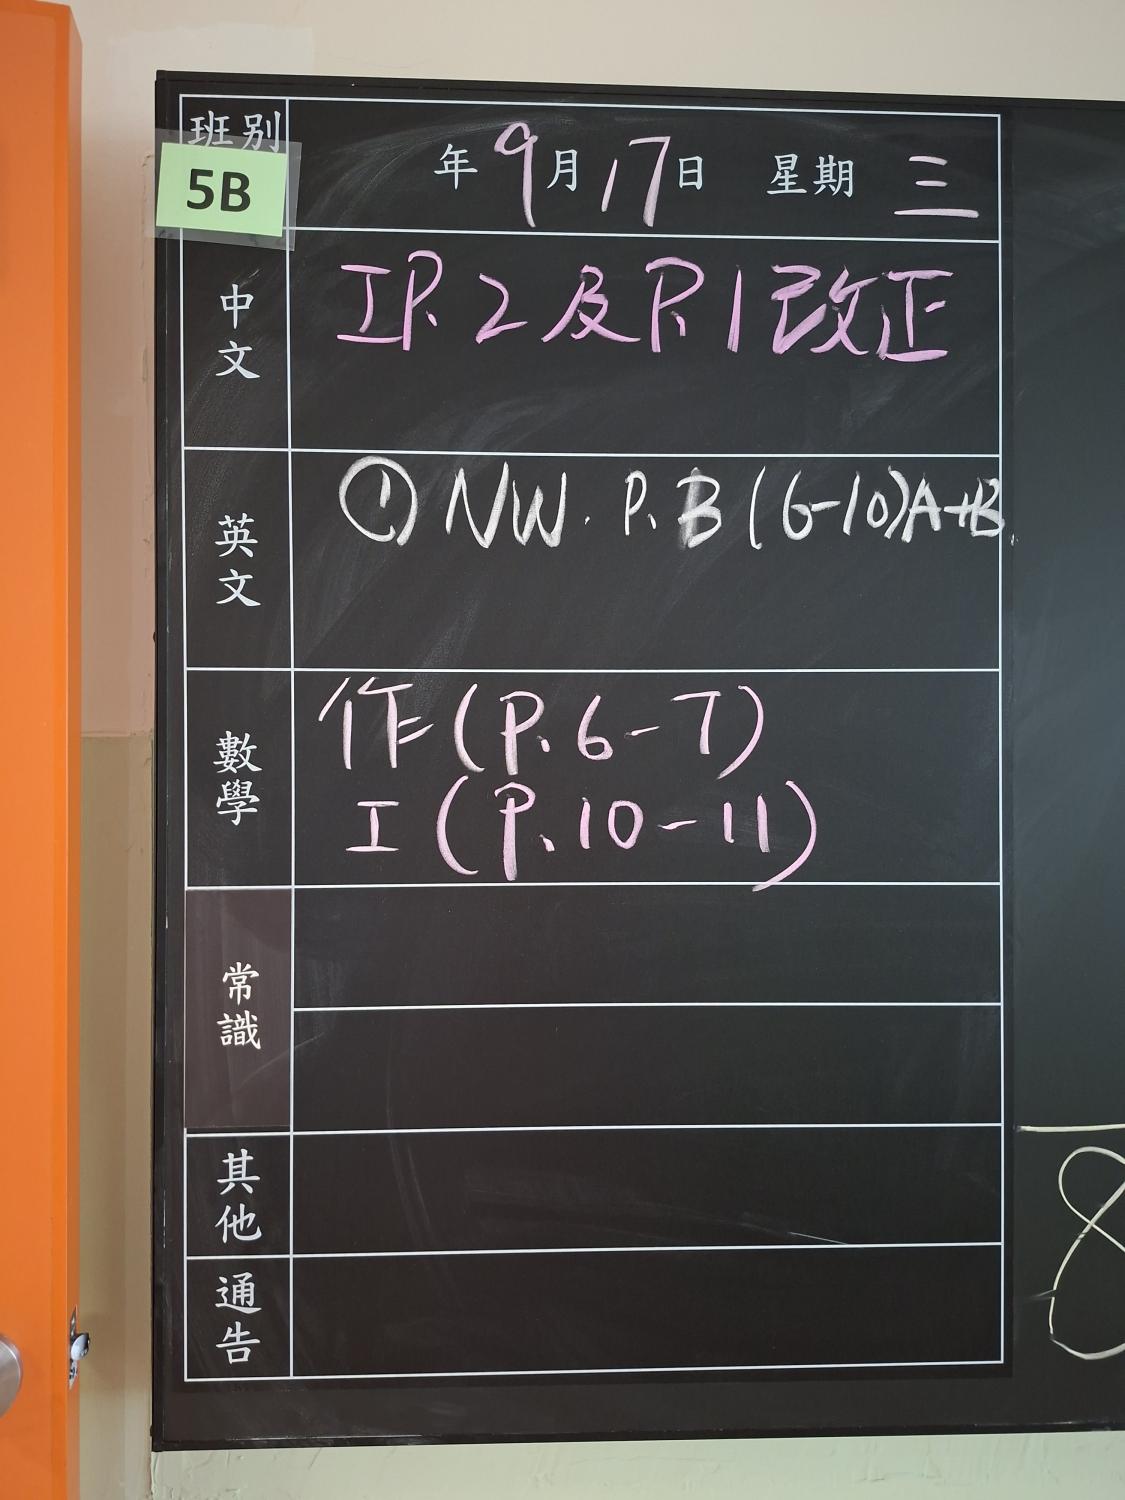 班別
5B
年 9月17日 星期 三
中文
工P.2及P.1改正
英文
① NW. P.B (6-10)A+B.
數學
作(P.6-7)
工(P.10-11)
常識
其他
通告
8